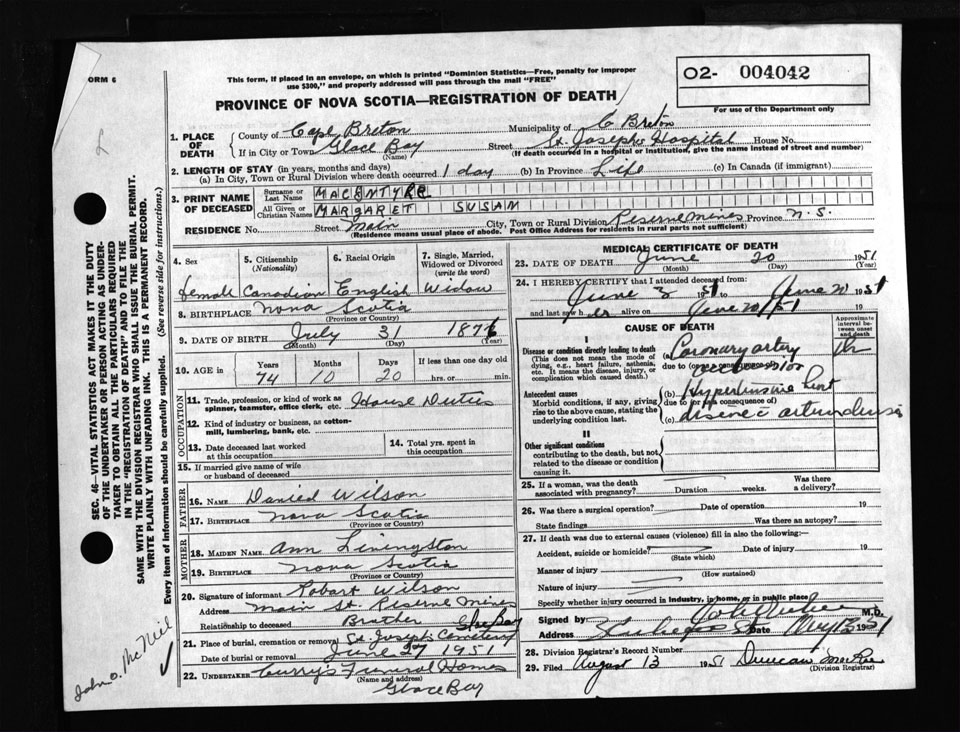 ORM 6
This form, if placed in an envelope, on which is printed "Dominion Statistics—Free, penalty for improper
use $300," and properly addressed will pass through the mail "FREE"
O2- 004042
For use of the Department only
PROVINCE OF NOVA SCOTIA—REGISTRATION OF DEATH
1. PLACE OF DEATH
County of Cape Breton Municipality of C Breton
If in City or Town Glace Bay (Name) Street St. Josephs Hospital House No.
(If death occurred in a hospital or institution, give the name instead of street and number)
2. LENGTH OF STAY (in years, months and days)
(a) In City, Town or Rural Division where death occurred 1 day (b) In Province Life (c) In Canada (if immigrant)
3. PRINT NAME OF DECEASED
Surname or Last Name MACENTYRE
All Given or Christian Names MARGARET SUSAM
RESIDENCE No. Street Main City, Town or Rural Division Reserve Mines Province N.S.
(Residence means usual place of abode. Post Office Address for residents in rural parts not sufficient)
4. Sex
Female
5. Citizenship (Nationality)
Canadian
6. Racial Origin
English
7. Single, Married, Widowed or Divorced (write the word)
Widow
8. BIRTHPLACE Nova Scotia
(Province or Country)
9. DATE OF BIRTH July 31 1876
(Month) (Day) (Year)
10. AGE Years 74 Months 10 Days 20 If less than one day old
hrs. or min.
OCCUPATION
11. Trade, profession, or kind of work as spinner, teamster, office clerk, etc. House Duties
12. Kind of industry or business, as cotton-mill, lumbering, bank, etc.
13. Date deceased last worked at this occupation
14. Total yrs. spent in this occupation
15. If married give name of wife or husband of deceased
FATHER
16. NAME Daniel Wilson
17. BIRTHPLACE Nova Scotia
(Province or Country)
MOTHER
18. MAIDEN NAME Ann Livingston
19. BIRTHPLACE Nova Scotia
(Province or Country)
20. Signature of informant Robart Wilson
Address Main St. Reserve Mines
Relationship to deceased Brother
Glace Bay
21. Place of burial, cremation or removal St. Joseph Cemetery
Date of burial or removal June 27 1951
22. UNDERTAKER Curry's Funeral Homes
(Name and address)
Glace Bay
MEDICAL CERTIFICATE OF DEATH
23. DATE OF DEATH June 20 1951
(Month) (Day) (Year)
24. I HEREBY CERTIFY that I attended deceased from:
June 51 to June 20 1951
and last saw her alive on June 20/51
CAUSE OF DEATH
Approximate interval between onset and death
I
Disease or condition directly leading to death
(This does not mean the mode of dying, e.g., heart failure, asthenia, etc. It means the disease, injury, or complication which caused death.)
(a) Coronary artery
due to (or as a consequence of)
occlusion
Antecedent causes
Morbid conditions, if any, giving rise to the above cause, stating the underlying condition last.
(b) Hypertensive heart
due to (or as a consequence of)
(c) disease
II
Other significant conditions
contributing to the death, but not related to the disease or condition causing it.
25. If a woman, was the death associated with pregnancy? Duration weeks. Was there a delivery?
26. Was there a surgical operation? Date of operation 19
State findings Was there an autopsy?
27. If death was due to external causes (violence) fill in also the following:—
Accident, suicide or homicide? (State which) Date of injury 19
Manner of injury
(How sustained)
Nature of injury
Specify whether injury occurred in industry, in home, or in public place
Signed by M.D.
Address Date 1951
28. Division Registrar's Record Number
29. Filed August 13 1951 Duncan
(Division Registrar)
SEC. 46—VITAL STATISTICS ACT MAKES IT THE DUTY
OF THE UNDERTAKER OR PERSON ACTING AS UNDER-
TAKER TO OBTAIN ALL THE PARTICULARS REQUIRED
IN THE "REGISTRATION OF DEATH" AND TO FILE THE
SAME WITH THE DIVISION REGISTRAR WHO SHALL ISSUE THE BURIAL PERMIT.
WRITE PLAINLY WITH UNFADING INK. THIS IS A PERMANENT RECORD.
Every item of information should be carefully supplied. (See reverse side for instructions.)
John O. McNeil